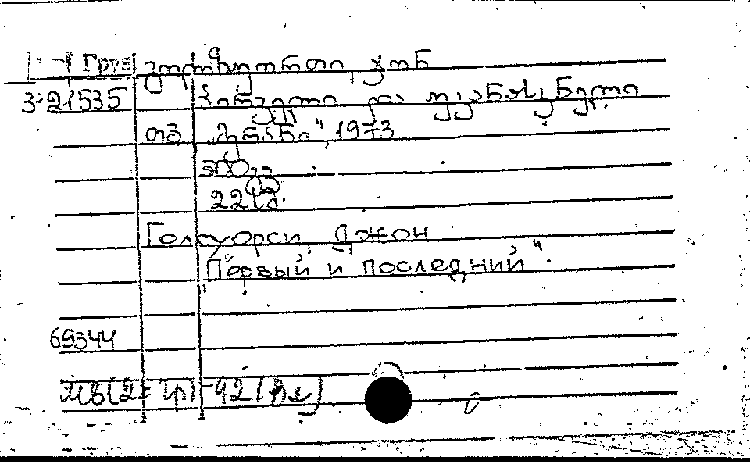 Груз გოლზუორთი, ჯონ
3-21535 პირველი და უკანასკნელი
თბ. „განათ“, 1973
500 ც.
22 გვ.
Голсуорси, Джон
„Первый и последний“.
69344